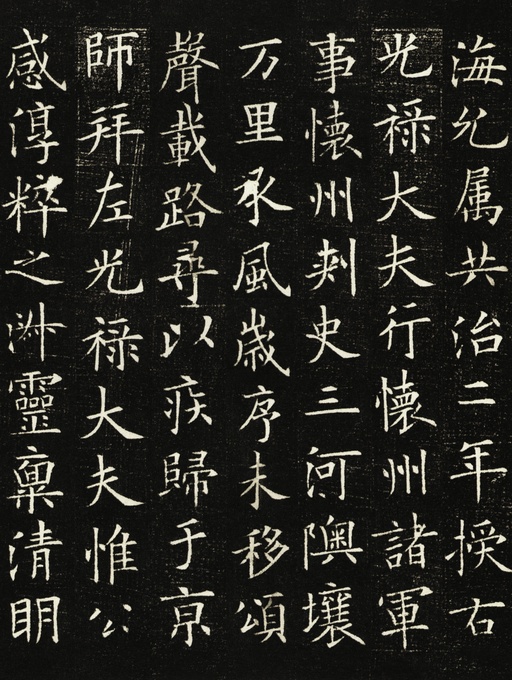 海允属共治二年授右
光禄大夫行懷州諸軍
事懷州刺史三河隩壤
万里承風歲序未移頌
聲載路尋以疾歸于京
師拜左光禄大夫惟公
感淳粹之㳤靈稟清明